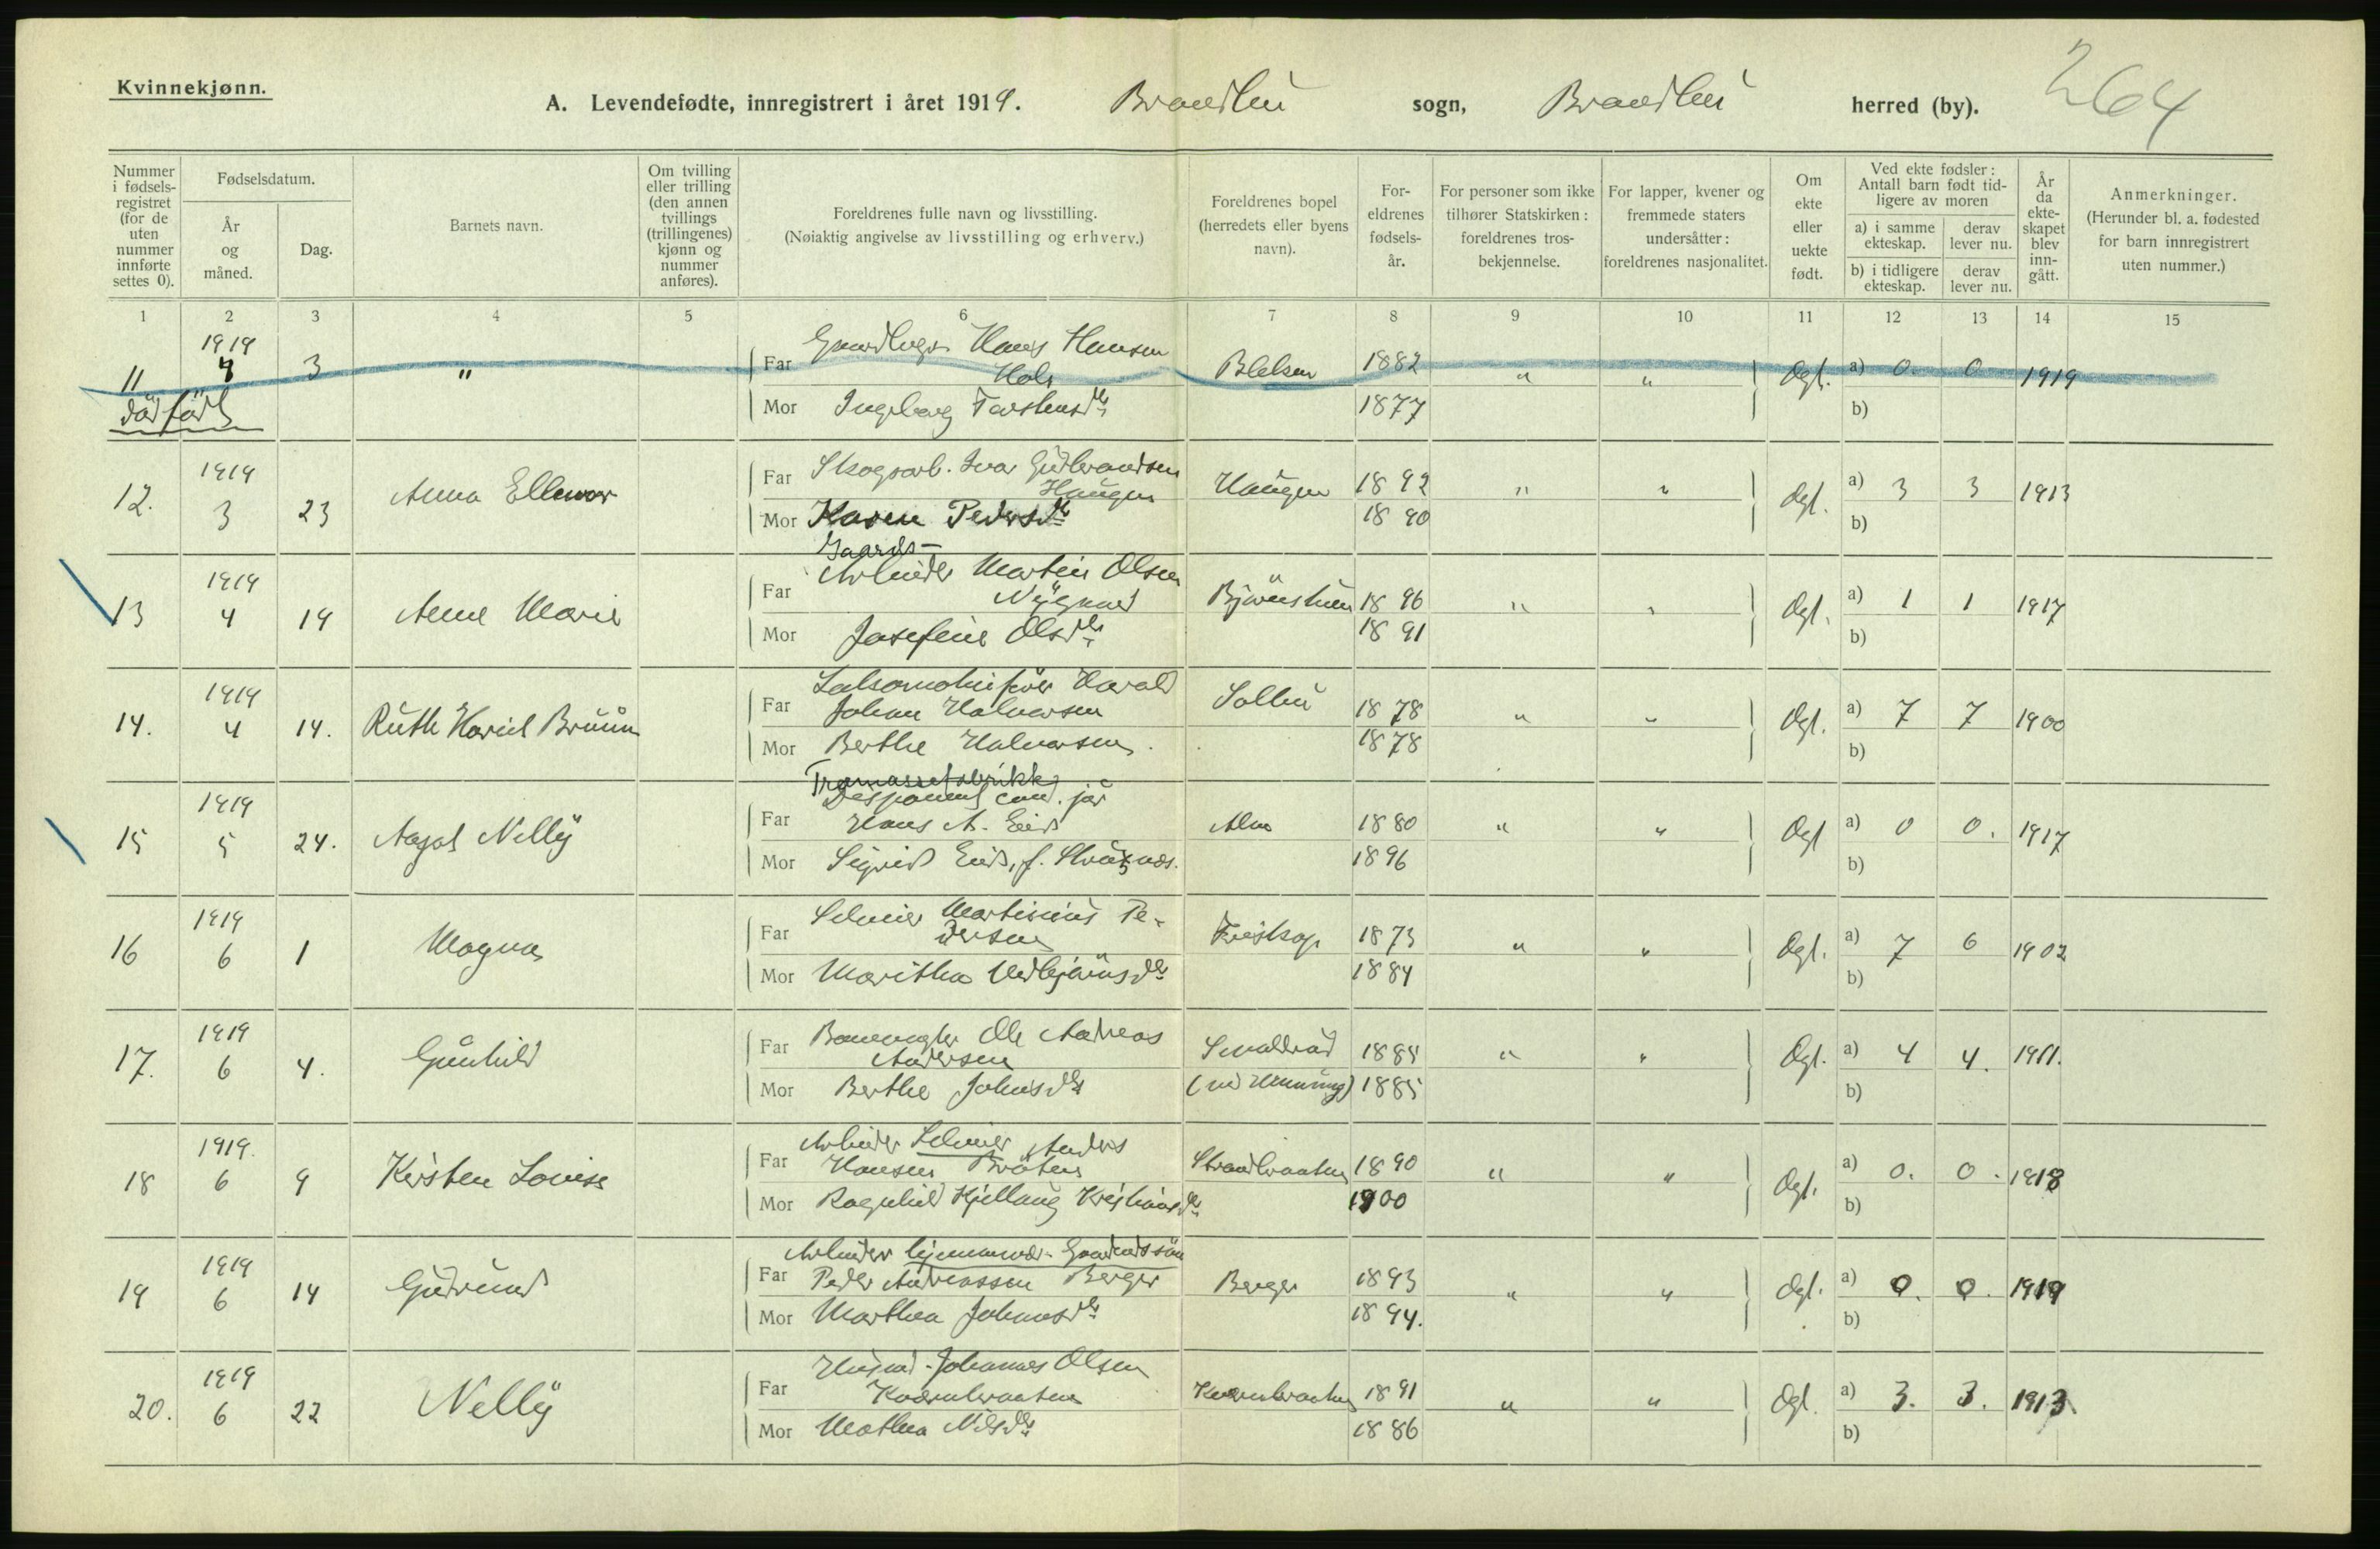 Kvinnekjønn.
A. Levendefødte, innregistrert i året 1919. Brandbu sogn, Brandbu herred (by). 264
Nummer i fødsels-registret (for de uten nummer innførte settes 0).
Fødselsdatum.
År og måned.
Dag.
Barnets navn.
Om tvilling eller trilling (den annen tvillings (trillingenes) kjønn og nummer anføres).
Foreldrenes fulle navn og livsstilling.
(Nøiaktig angivelse av livsstilling og erhverv.)
Foreldrenes bopel (herredets eller byens navn).
For-eldrenes fødsels-år.
For personer som ikke tilhører Statskirken: foreldrenes tros-bekjennelse.
For lapper, kvener og fremmede staters undersåtter: foreldrenes nasjonalitet.
Om ekte eller uekte født.
Ved ekte fødsler: Antall barn født tid-ligere av moren
a) i samme ekteskap. derav lever nu.
b) i tidligere ekteskap. derav lever nu.
År da ekte-skapet blev inn-gått.
Anmerkninger.
(Herunder bl. a. fødested for barn innregistrert uten nummer.)
1 2 3 4 5 6 7 8 9 10 11 12 13 14 15
1919
11 4 3 " Far Hans Hansen
Hols
1882 " " Ogt. a) 0. 0 1919
dødfødt
Mor Ingeborg Torstensdtr 1877 b)
1919
12. 3 23 Anna Ellenor Far Skogsarb. Ivar Gudbrandsen
Haugen Haugen 1892 " " Ogt. a) 3 3 1913
Mor Karen Pedersdtr 1890 b)
Gaards-
1919
13 4 19 Anne Marie Far Arbeider Martin Olsen
Nygaard 1896 " " Ogt. a) 1 1 1917
Mor Josefine Olsdtr 1891 b)
1919
14. 4 14. Ruth Harriet Bruun Far Lokomotivfører Harald
Johan Halvorsen 1878 " " Ogt. a) 7 7 1900
Mor Berthe Halvorsen. 1878 b)
Tremassefabrikk
1919
15 5 24. Aagot Nelly Far Disponent cand. jur
Hans A. Eid Alm 1880 " " Ogt a) 0 0. 1917
Mor Sigrid Eid, f. 1896 b)
1919
16 6 1 Magna Far Selveier Martinius Pe-
dersen 1873 " " Ogt. a) 7 6 1902
Mor Maritha 1884 b)
1919
17. 6 4. Gunhild Far Banevogter Ole Andreas
Andersen 1884 " " Ogt. a) 4 4. 1911.
Mor Berthe Johnsdtr 1885 b)
1919.
18 6 9 Kirsten Louise Far Arbeider Selveier Anders
Hansen Bråten Strandbraaten 1890 " " Ogt. a) 0. 0. 1918
Mor Ragnhild 1900 b)
1919
19 6 14 Gudrund Far Arbeider hjemmevær. Gaardmandssøn
Peder Andreassen Berger Berger 1893 " " Ogt. a) 0. 0. 1919
Mor Marthea Johansdtr 1894. b)
1919
20. 6 22 Nelly Far Husmd. Johannes Olsen
Kværnbraaten Kværnbraaten 1891 " " Ogt. a) 3. 3. 1913.
Mor Mathea Nilsdtr 1886 b)